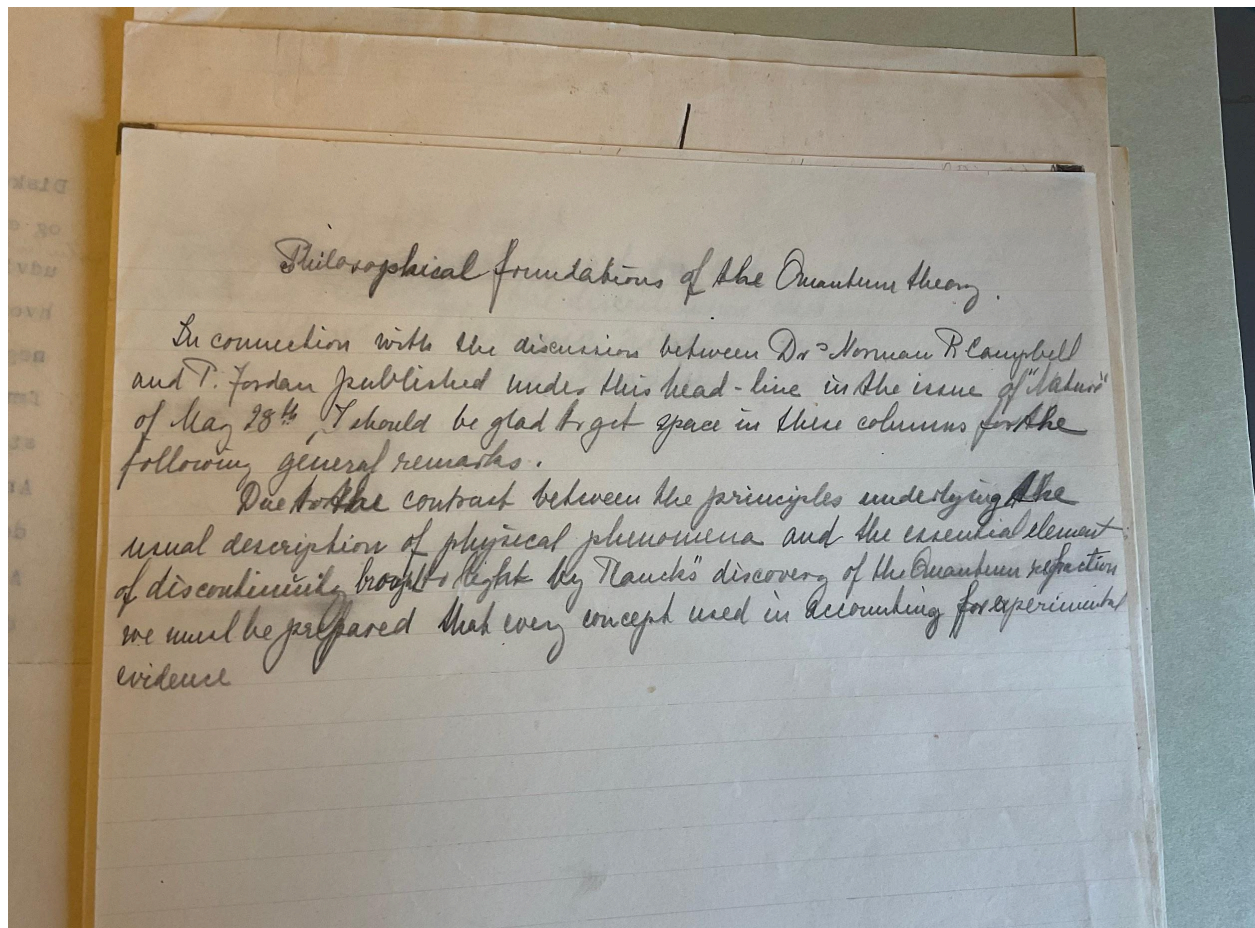 Philosophical foundations of the Quantum theory.
In connection with the discussion between Drs Norman R Campbell
and P. Jordan published under this head-line in the issue of "Nature"
of May 28th, I should be glad to get space in these columns for the
following general remarks.
Due to the contrast between the principles underlying the
usual description of physical phenomena and the essential element
of discontinuity brought to light by Planck's discovery of the Quantum of action
we must be prepared that every concept used in accounting for experimental
evidence
Disk
og
udv
hvo
neg